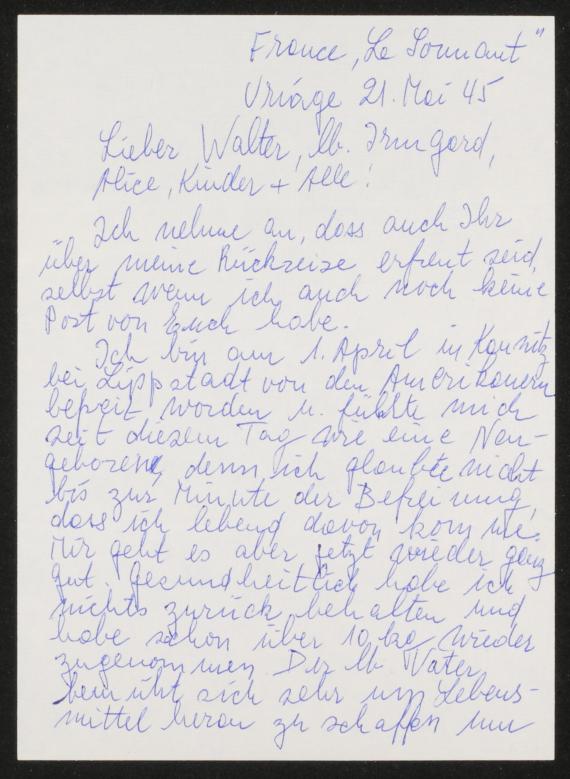 France, "Le Sonnant"
Uriage 21. Mai 45
Lieber Walter, lb. Irmgard,
Alice, Kinder + Alle!
Ich nehme an, dass auch Ihr
über meine Rückreise erfreut seid,
selbst wenn ich auch noch keine
Post von Euch habe.
Ich bin am 1. April in Kaunitz
bei Lippstadt von den Amerikanern
befreit worden u. fühlte mich
seit diesem Tag wie eine Neu-
geborene, denn ich glaubte nicht
bis zur Minute der Befreiung,
dass ich lebend davon komme.
Mir geht es aber jetzt wieder ganz
gut. Gesundheitlich habe ich
nichts zurück behalten und
habe schon über 10 kg wieder
zugenommen. Der lb. Vater
bemüht sich sehr um Lebens-
mittel heran zu schaffen um